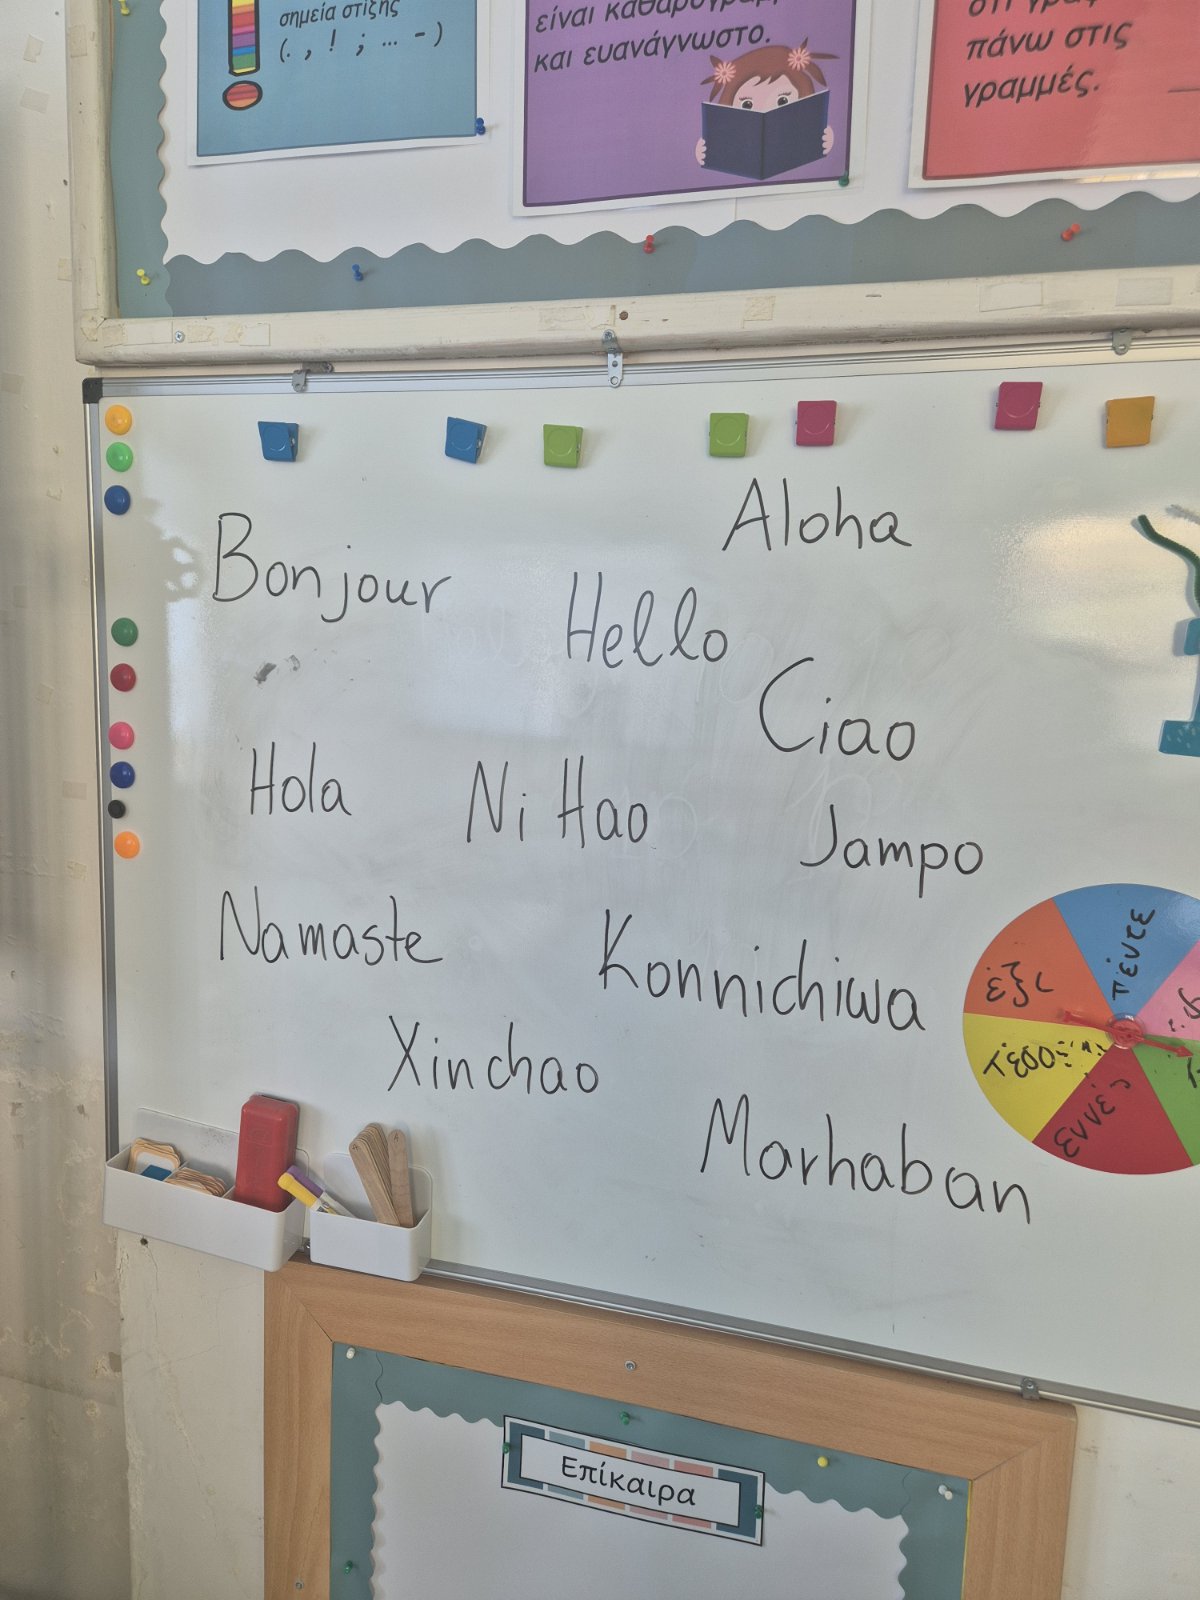 σημεία στίξης
(. , ! ; ... - )
και ευανάγνωστο.
πάνω στις
γραμμές.
Aloha
Bonjour
Hello
Ciao
Hola
Ni Hao
Jampo
Namaste
Konnichiwa
Xinchao
Marhaban
πέντε
έξι
εννές
Επίκαιρα